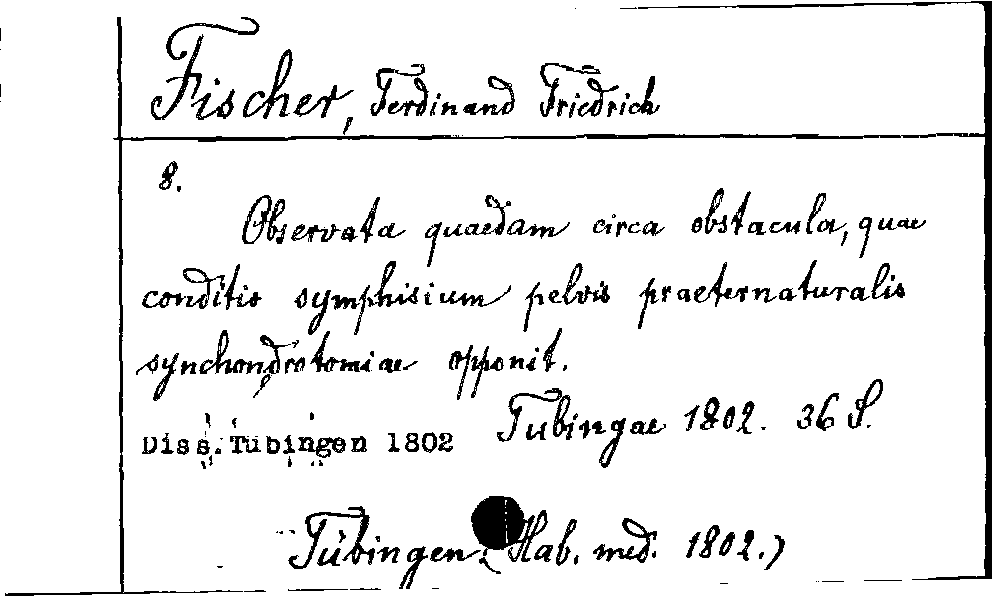 Fischer, Ferdinand Friedrich
8.
Observata quaedam circa obstacula, quae
conditio symphisium pelvis praeternaturalis
synchondrotomiae opponit.
Tubingae 1802. 36 S.
Diss. Tübingen 1802
Tübingen. (Hab. med. 1802.)